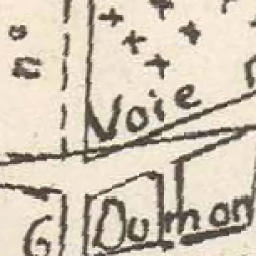 Voie
G Dumon